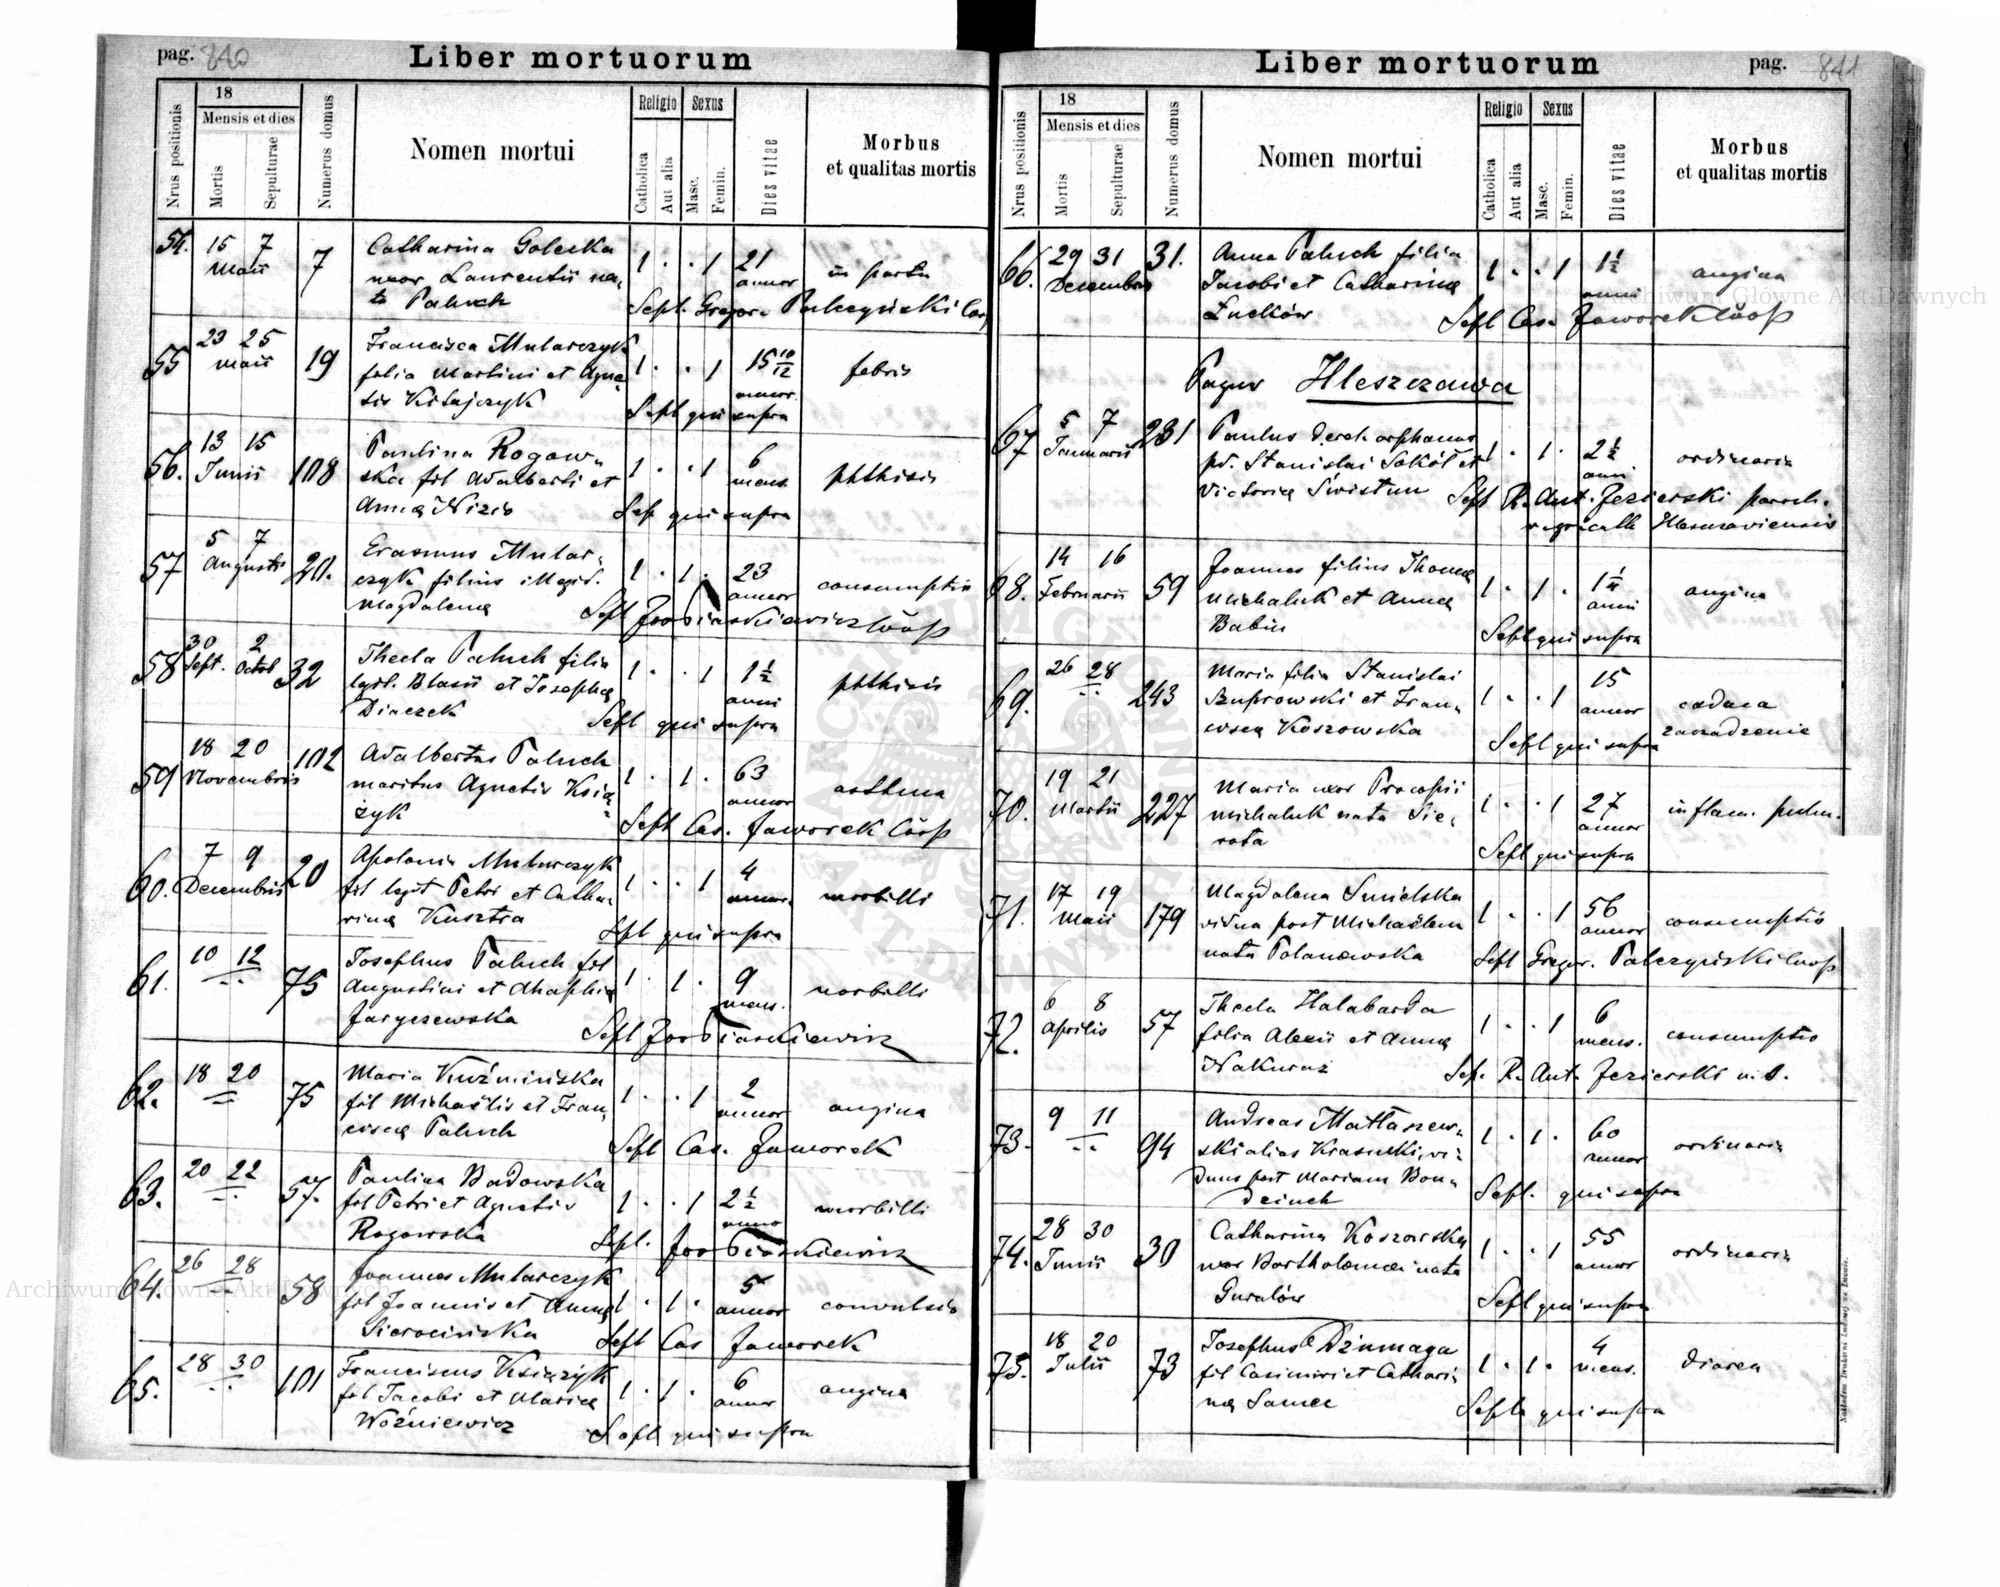 pag. 840
Liber mortuorum
Nrus positionis
18
Mensis et dies
Mortis
Sepulturae
Numerus domus
Nomen mortui
Religio
Catholica
Aut alia
Sexus
Masc.
Femin.
Dies vitae
Morbus
et qualitas mortis
54. 15 7 Maii 7
Catharina Golecka
uxor Laurentii na,
ta Paluch
1 . . 1 21 annor in partu
Sepl. Gregor.
55 23 25 Maii 19
Francisca Mularczyk
filia Martini et Agne
tis
1 . . 1 15 10/12 annor. febris
Sepl qui supra
56. 13 15 Junii 108
Paulina Rogow„
ska fil Adalberti et
Annae Nizio
1 . . 1 6 mens. phthisis
Sep qui supra
57 5 7 Augusti 20.
Erasmus Mular„
czyk filius illegit.
Magdalenae
1 . 1 . 23 annor consumptio
58 30 Sept. 2 Octob 32
Thecla Paluch filia
legit. Blasii et Josephae
Diaczek
1 . . 1 1 1/2 anni phthisis
Sepl qui supra
59 18 20 Novembris 102
Adalbertus Paluch
maritus Agnetis Ksią
żyk
1 . 1 . 63 annor asthma
Sepl Cas. Jaworek
60. 7 9 Decembris 20
Apolonia Mularczyk
fil legit Petri et Catha„
rinae Kusztra
1 . . 1 4 annor. morbilli
Sepl qui supra
61. 10 12 75
Josephus Paluch fil
Augustini et
Jaryczewska
1 . 1 . 9 mens. morbilli
62. 18 20 75
Maria Kuźmińska
fil Michaëlis et Fran„
ciscae Paluch
1 . . 1 2 annor angina
Sepl Cas. Jaworek
63. 20 22 57.
Paulina Badowska
fil Petri et Agnetis
Rogowska
1 . . 1 2 1/2 anno morbilli
64. 26 28 58
Joannes Mularczyk
fil Joannis et Annae
Sierocińska
1 . 1 . 5 annor convulsio
Sepl Cas Jaworek
65. 28 30 101
Franciscus Książyk
fil Jacobi et Mariae
Woźniewicz
1 . 1 . 6 annor angina
Sepl qui supra
Liber mortuorum
pag. 841
Nrus positionis
18
Mensis et dies
Mortis
Sepulturae
Numerus domus
Nomen mortui
Religio
Catholica
Aut alia
Sexus
Masc.
Femin.
Dies vitae
Morbus
et qualitas mortis
66. 29 31 Decembris 31.
Anna Paluch filia
Jacobi et Catharinae
Łuców
1 . . 1 1 1/2 anni angina
Sepl Cas. Jaworek
Pagus Hleszczawa
67 5 7 Januarii 231
Paulus derel. orphanus
pd. Stanislai Sokół et
Victoriae Świstun
1 . 1 . 2 1/2 anni ordinaria
Sepl R. Ant. Jezierski paroch.
68. 14 16 Februarii 59
Joannes filius Thomae
Michaluk et Annae
Babin
1 . 1 . anni angina
Sepl qui supra
69. 26 28 243
Maria filia Stanislai
Szuprowski et Fran„
cisca Koszowska
1 . . 1 15 annor
Sepl qui supra
70. 19 21 Martii 227
Maria uxor Procopii
Michaluk nata Sie„
rota
1 . . 1 27 annor inflam. pulm.
Sepl qui supra
71. 17 19 Maii 179
Magdalena Smielska
vidua post Michaëlem
nata Polanowska
1 . . 1 56 annor consumptio
Sepl Gregor.
72. 6 8 Aprilis 57
Thecla Halabarda
filia Alexii et Annae
1 . . 1 6 mens. consumptio
Sep. R. Ant. Jezierski
73. 9 11 94
Andreas Mattaszew„
ski alias Krasucki, vi„
duus post Mariam
1 . 1 . 60 annor ordinaria
Sepl. qui supra
74. 28 30 Junii 30
Catharina Koszowska
uxor Bartholomaei nata
Guralów
1 . . 1 55 annor ordinaria
Sepl qui supra
75. 18 20 Julii 73
Josephus Dziumaga
fil Casimiri et Cathari„
nae Samec
1 . 1 . 4 mens. diarea
Sepl. qui supra
Archiwum Główne Akt Dawnych
Archiwum Główne Akt Dawnych
ARCHIWUM GŁÓWNE AKT DAWNYCH